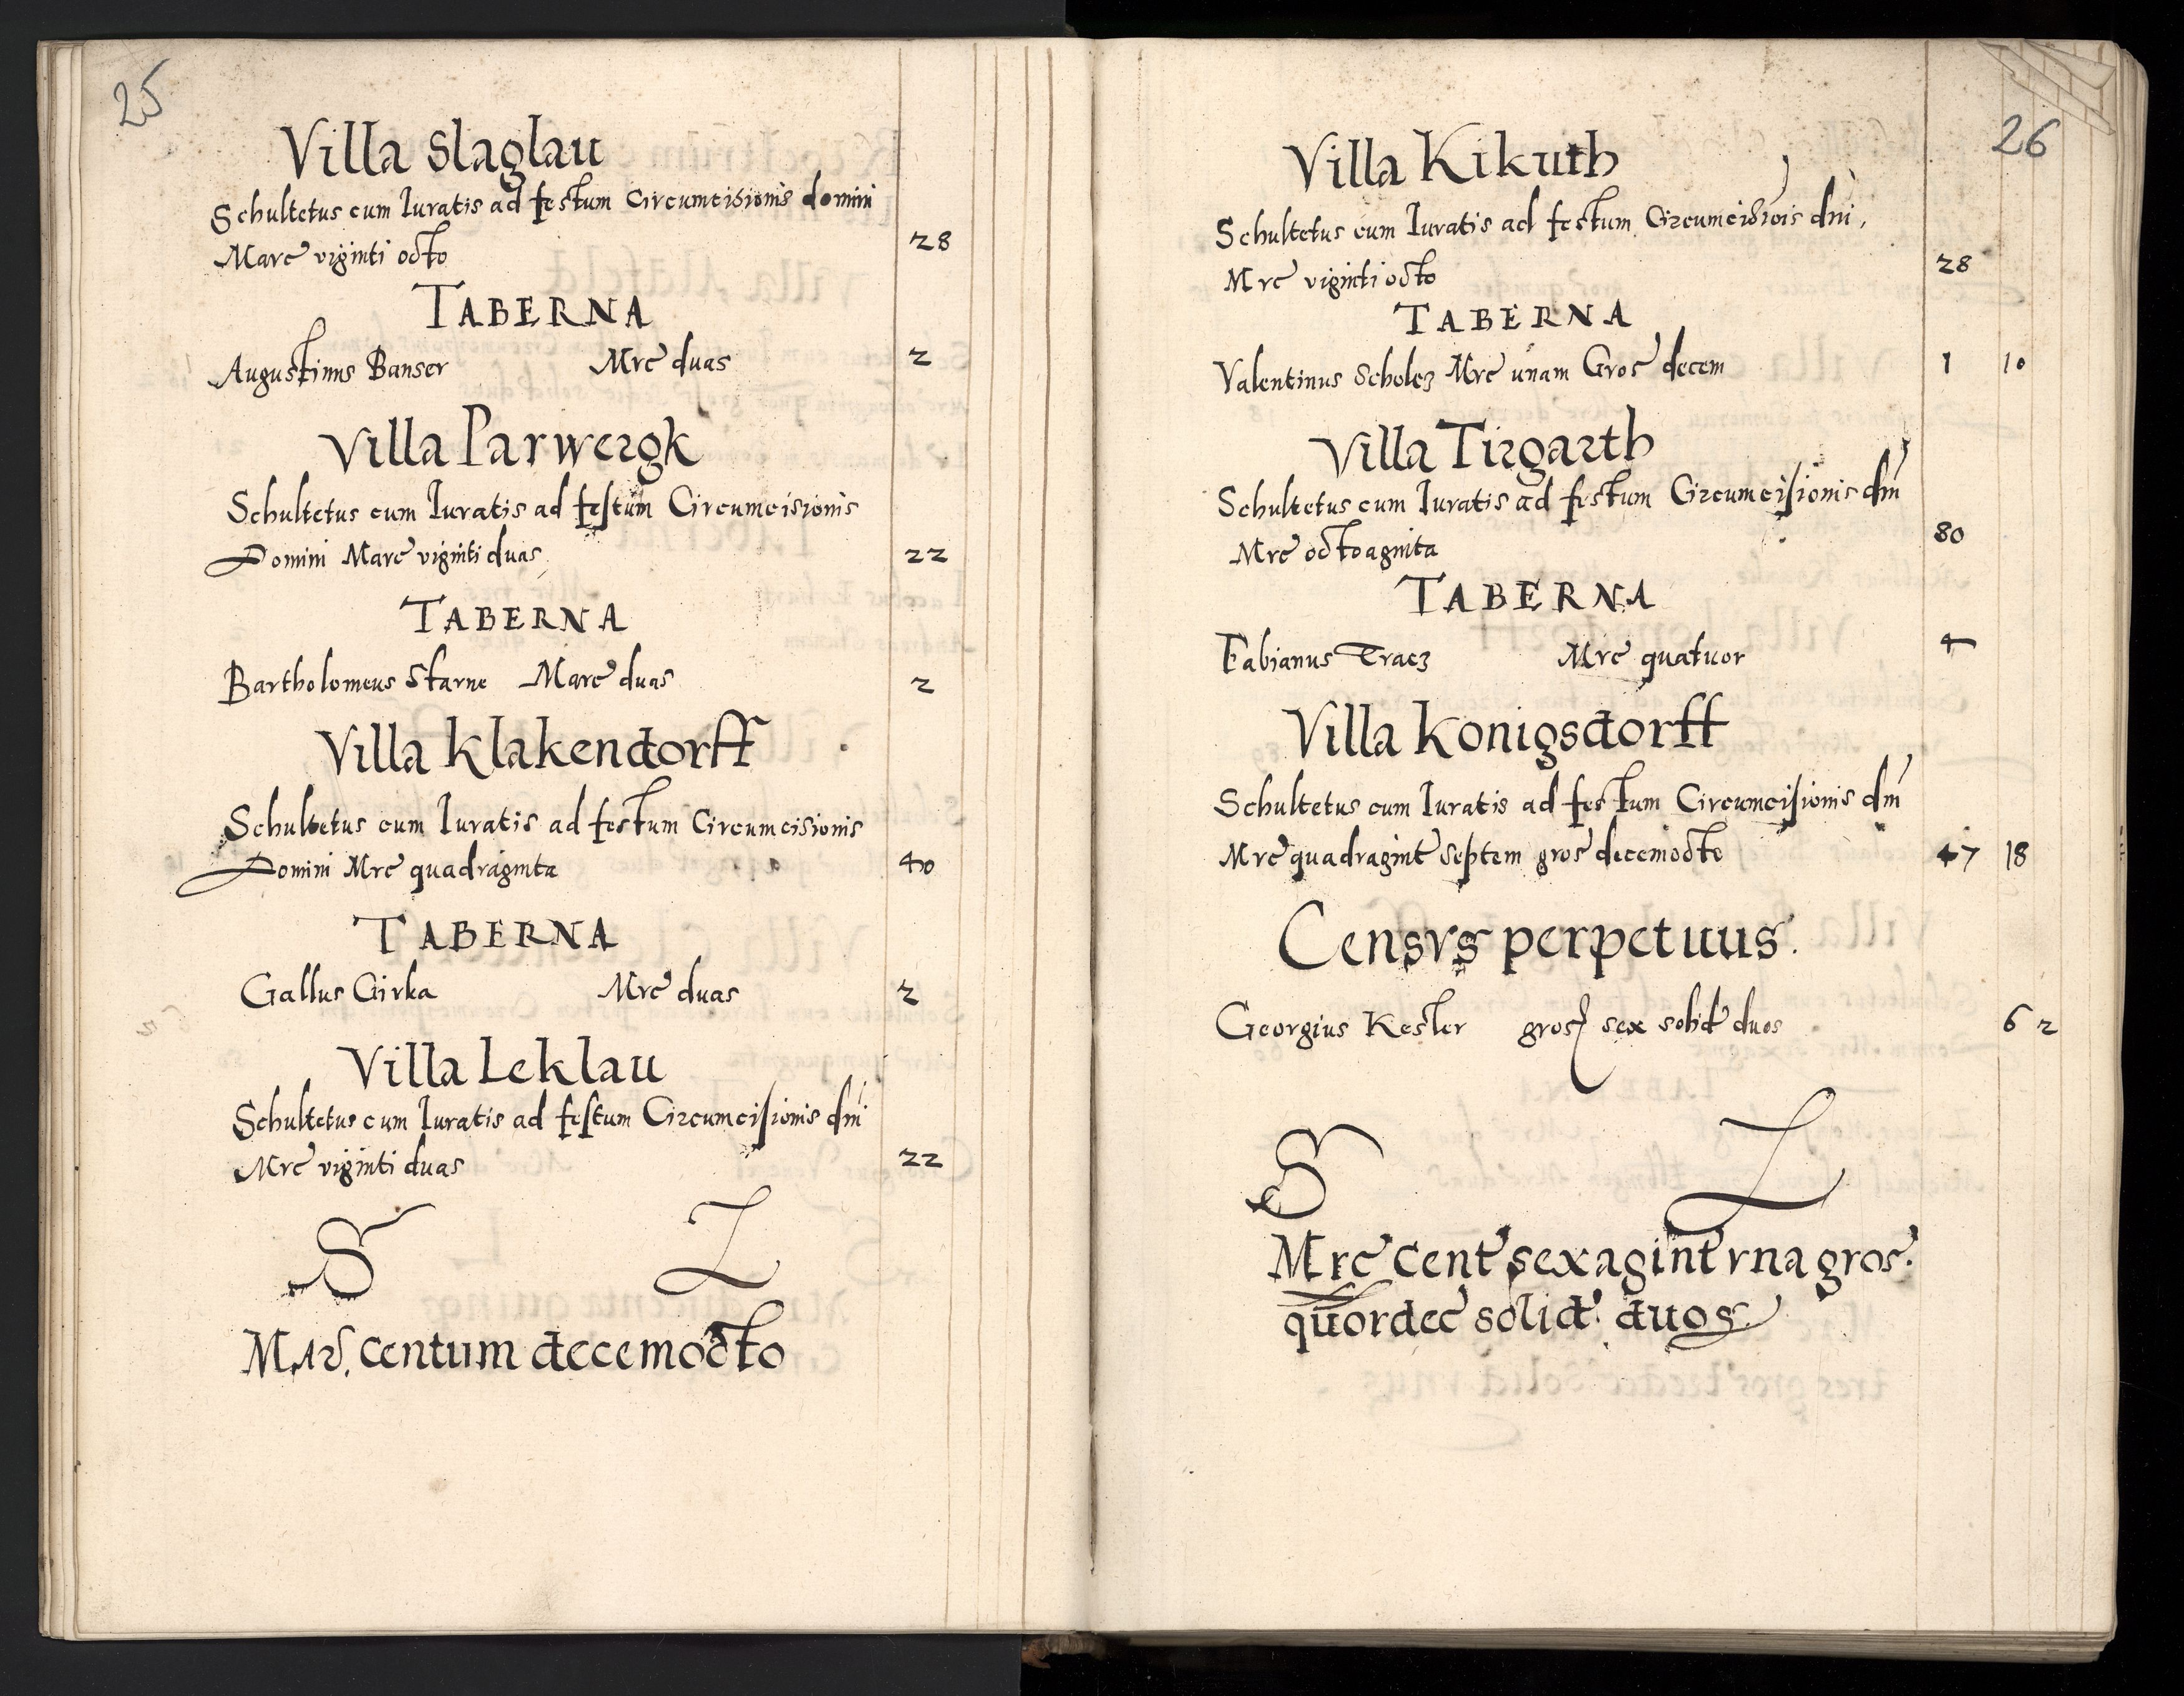 25
Villa Slaglau
Schultetus cum Iuratis ad festum Circumcisionis domini
Marc viginti octo 28
TABERNA
Augustinus Banser Mrc duas 2
Villa Parwergk
Schultetus cum Iuratis ad festum Circumcisionis
Domini Marc viginti duas 22
TABERNA
Bartholomeus Starne Marc duas 2
Villa Klakendorff
Schultetus cum Iuratis ad festum Circumcisionis
Domini Mrc quadraginta 40
TABERNA
Gallus Girka Mrc duas 2
Villa Leklau
Schultetus cum Iuratis ad festum Circumcisionis dni
Mrc viginti duas 22
S L
Mar. centum decemocto
26
Villa Kikuth
Schultetus cum Iuratis ad festum Circumcisiois dni,
Mrc viginti octo 28
TABERNA
Valentinus Scholcz Mrc unam Gros decem 1 10
Villa Tirgarth
Schultetus cum Iuratis ad festum Circumcisionis dni
Mrc octoagnita 80
TABERNA
Fabianus Mrc quatuor 4
Villa Konigsdorff
Schultetus cum Iuratis ad festum Circumcisionis dni
Mrc quadragint septem gros decemocto 47 18
Censvs perpetuus.
Georgius Kester gros sex solid duos 6 2
S L
Mrc cent sexagint vna gros.
quordec solid. duos